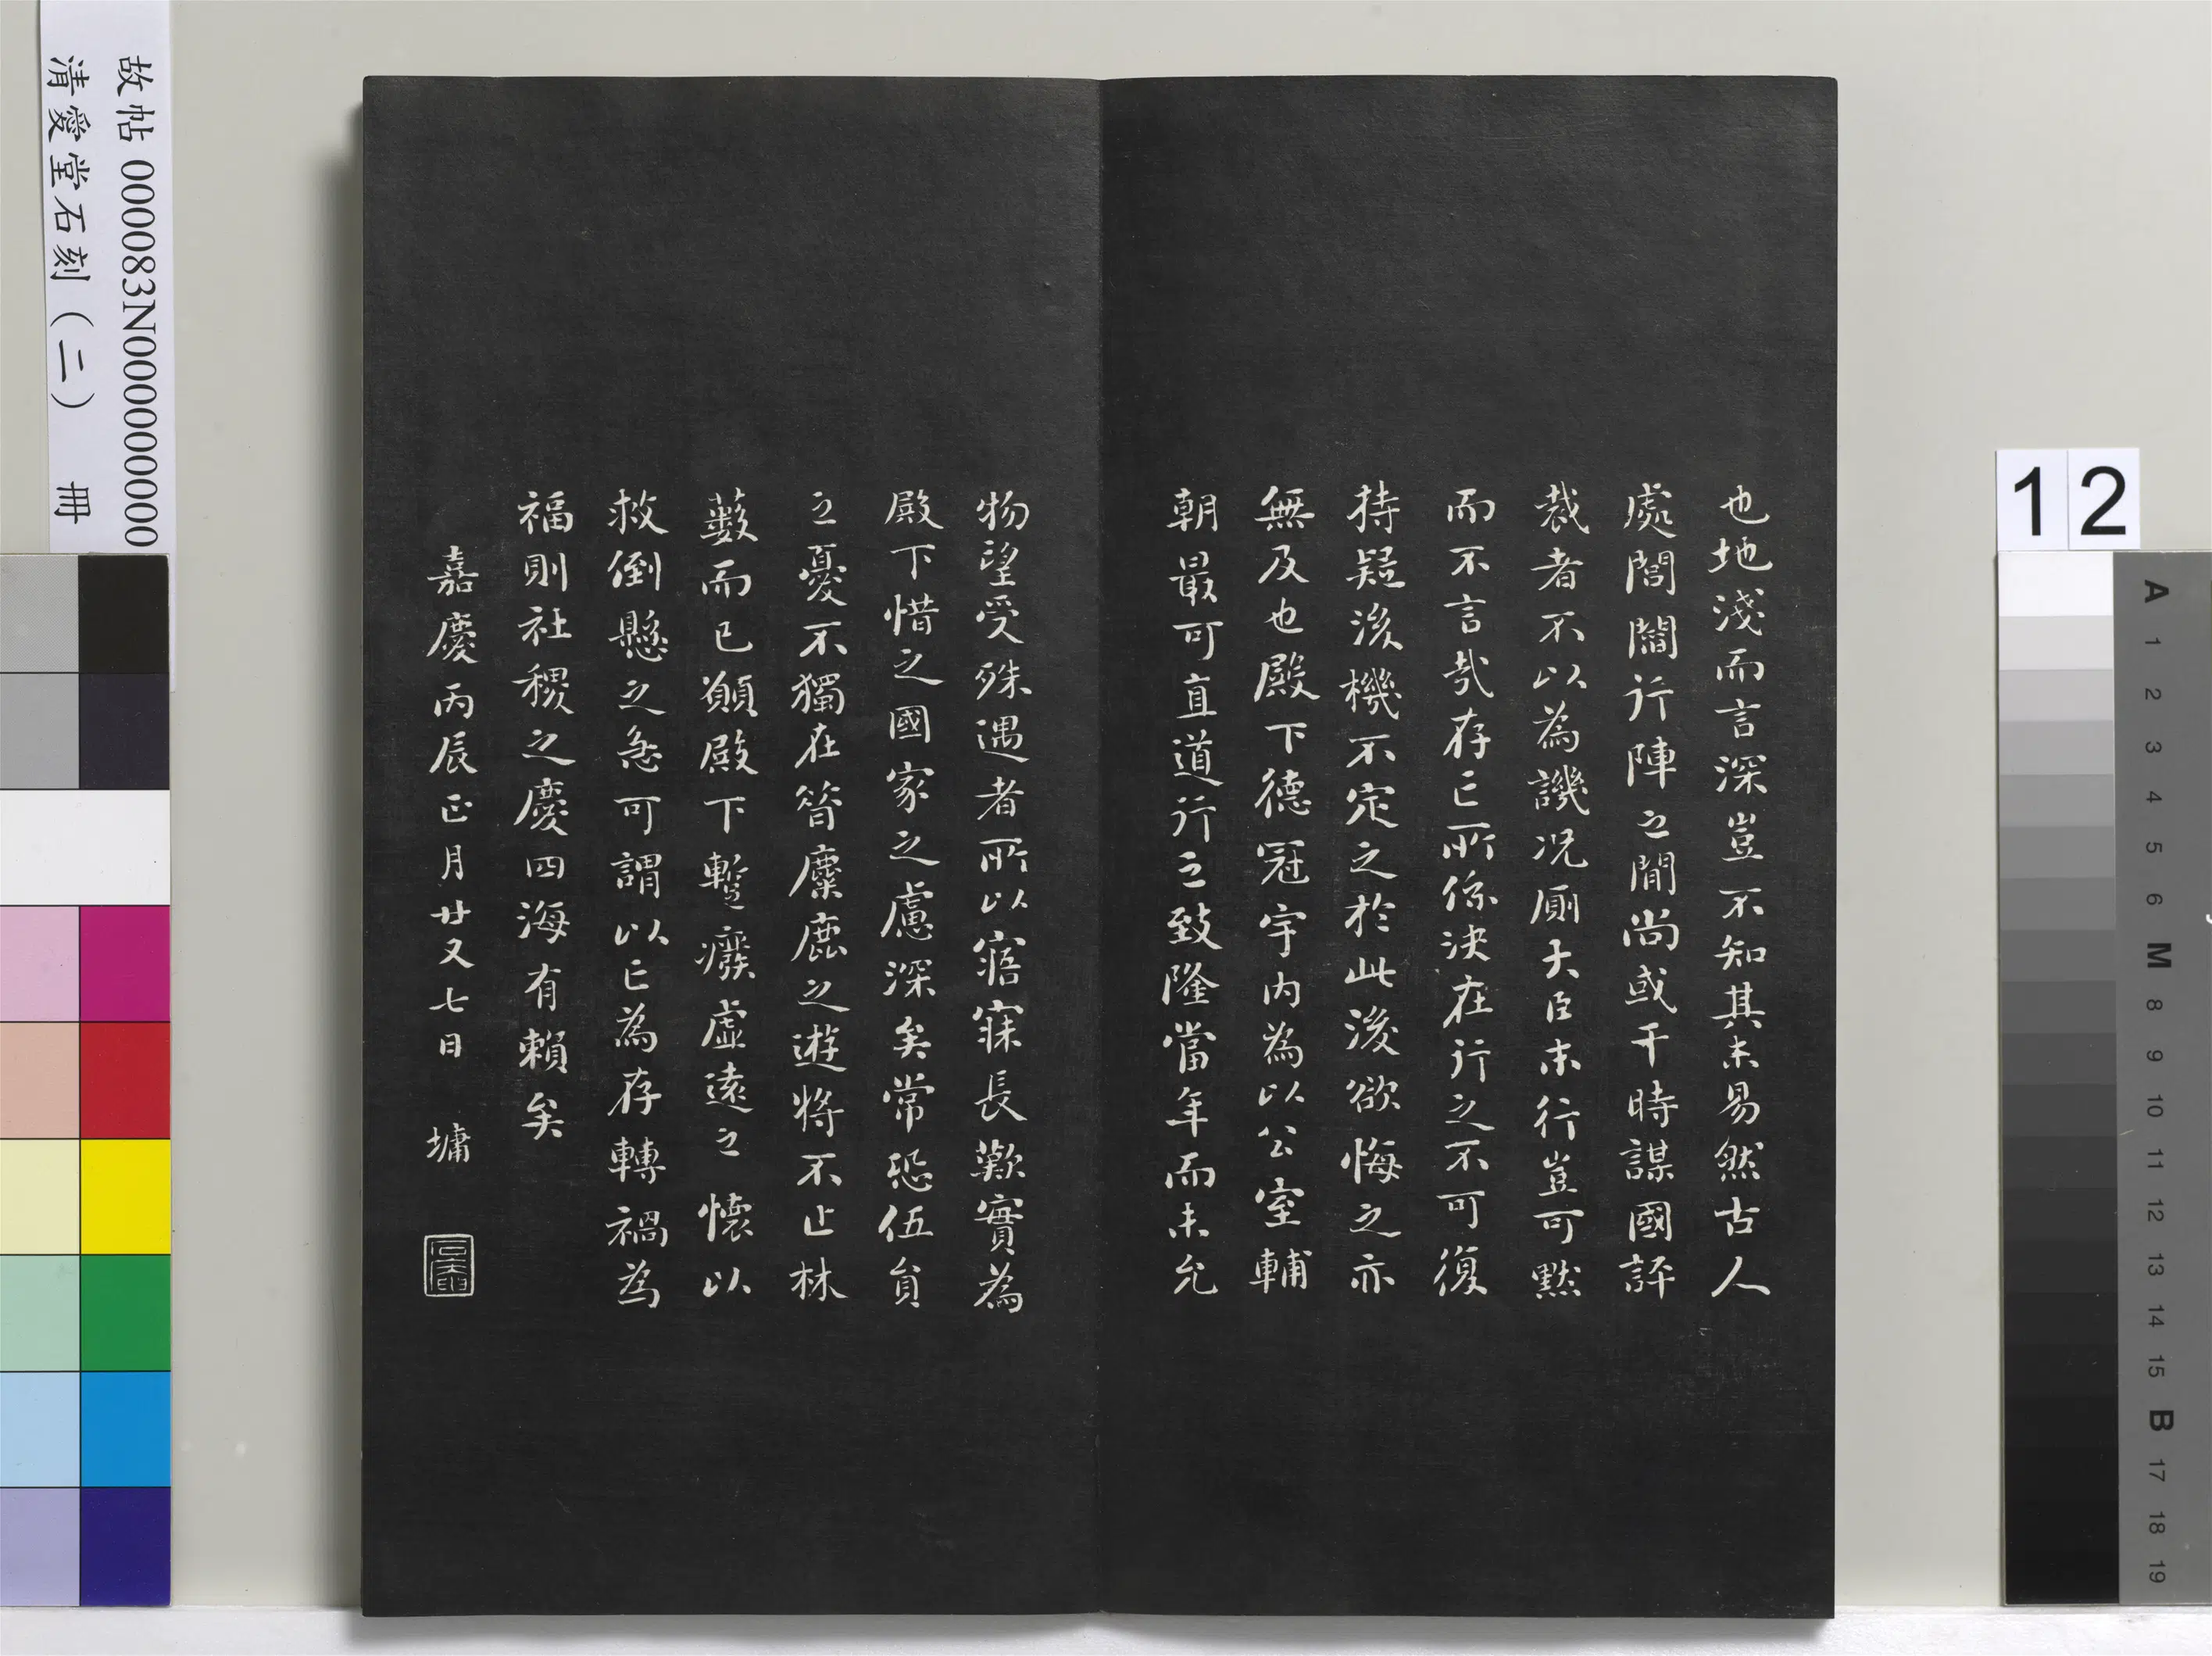 故帖 000083N000000000
清愛堂石刻（二） 冊
12
也地淺而言深豈不知其未易然古人
處閭閻行陣之間尚或干時謀國評
裁者不以為譏況廁大臣末行豈可默
而不言哉存亡所係決在行之不可復
持疑後機不定之於此後欲悔之亦
無及也殿下德冠宇内為以公室輔
朝最可直道行之致隆當年而未允
物望受殊遇者所以寤寐長歎實為
殿下惜之國家之慮深矣常恐伍員
之憂不獨在昔麋鹿之遊將不止林
藪而已願殿下暫癈虛遠之懷以
救倒懸之急可謂以亡為存轉禍為
福則社稷之慶四海有賴矣
嘉慶丙辰正月廿又七日 墉
石菴
A 1 2 3 4 5 6 M 8 9 10 11 12 13 14 15 B 17 18 19